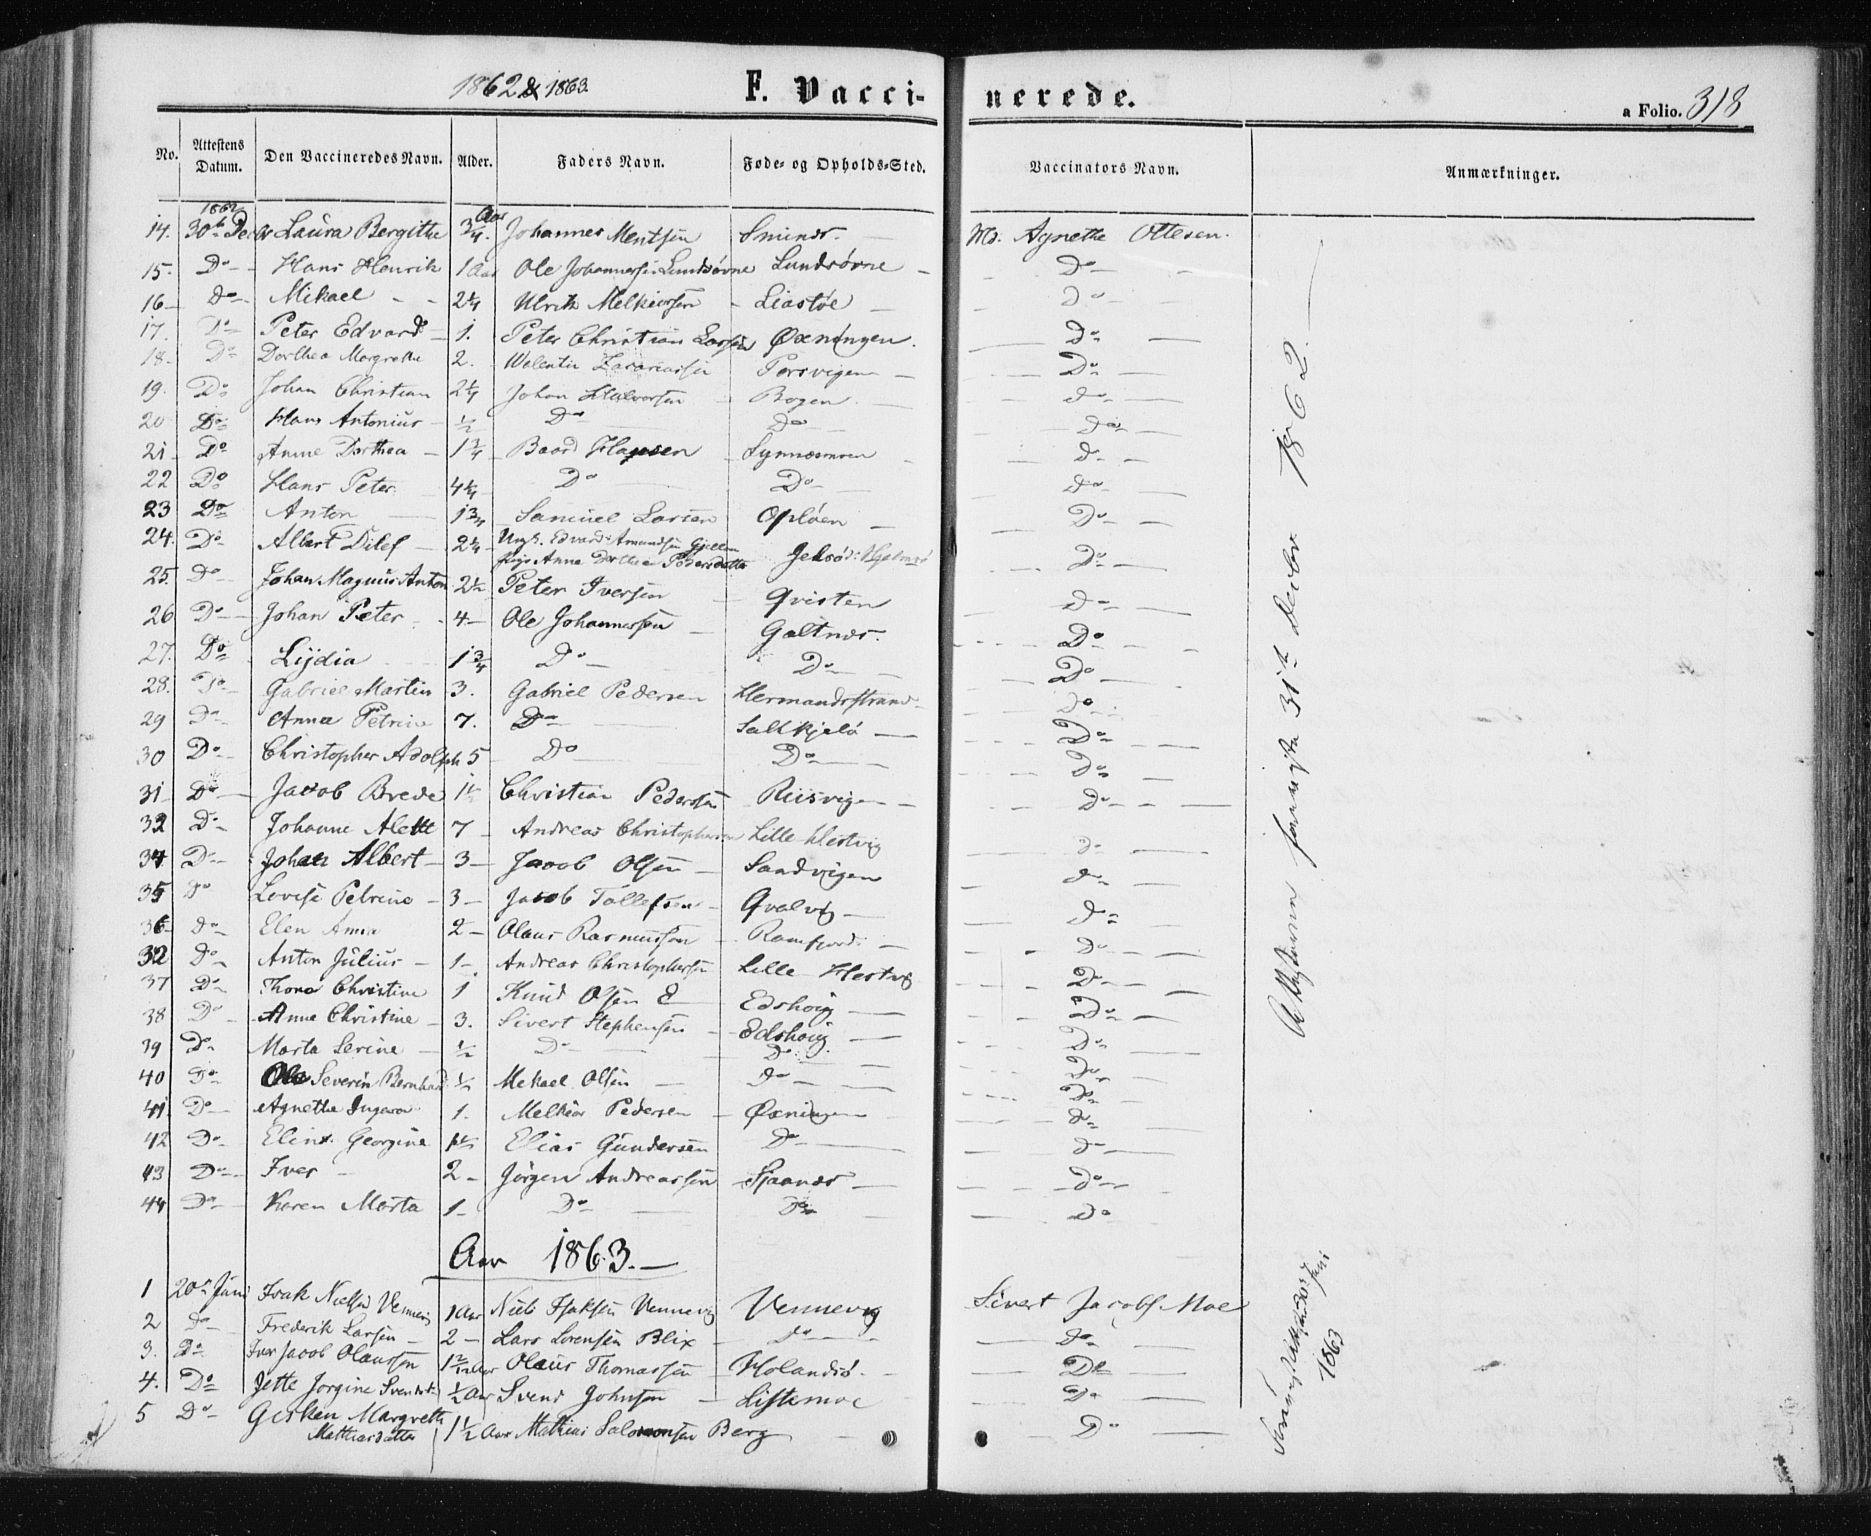 1862 & 1863.
F. Vacci-
nerede.
a Folio. 318
No. Attestens Datum. Den Vaccineredes Navn. Alder. Faders Navn. Føde- og Opholds-Sted. Vaccinators Navn. Anmærkninger.
1862 Aar
14. 30te Decbr Laura Bergithe 3/4. Johannes Mentsen Smines. Md. Agnethe Ottesen.
15. Do Hans Henrik 1 Aar Ole Johannesen Lundsøvne Lundsøvne Do
16 Do Mikael 2 1/4 Ulrik Melkiorsen Liastøe Do
17. Do Peter Edvard 1. Peter Christian Larsen Øxningen. Do
18. Do Dorthea Margrethe 2. Welentin Zacariasen Porsvigen Do
19. Do Johan Christian 2 1/4 Johan Halvorsen Bogen Do
20 Do Hans Antonius 1/2 Do Do Do
21 Do Anne Dorthea 1 3/4 Baard Hansen Do
22 Do Hans Peter 4 1/4 Do Do Do
23 Do Anton 1 3/4 Samuel Larsen Opløen Do
24. Do Albert Ditlef 2 1/4 Ungk. Edvard Amundsen Gjellen
Pige Anne Dorthea Pedersdatter Jeksø Do
25 Do Johan Magnus Anton 2 1/2 Peter Iversen Qvisten Do
26 Do Johan Peter 4 Ole Johannessen Galtnes. Do
27. Do Lydia 1 3/4 Do Do Do
28. Do Gabriel Martin 3. Gabriel Pedersen Hermandsstrand Do
29 Do Anna Petrine 7. Do Salkkjelø Do
30 Do Christopher Adolph 5 Do Do Do
31 Do Jacob Brede 1 1/2 Christian Pedersen Riisvigen Do
32 Do Johanne Alette 7 Andreas Christophersen Lille Hestvig Do
34 Do Johan Albert 3 Jacob Olsen Sandvigen Do
35 Do Lovise Petrine 3 Jacob Tollefsen Qvalvig Do
36 Do Elen Anna 2 Olaus Rasmussen Ramfjord Do
32 Do Anton Julius 1 Andreas Christophersen Lille Hestvig Do
37 Do Thona Christine 1 Knud Olsen E Edshoug Do
38 Do Anne Christine 3. Sivert Stephensen Edshoug Do
39 Do Marta Serine 1/2 Do Do Do
40 Do Ole Severin Bernhard 1/2 Mekael Olsen Do Do
41. Do Agnetha Ingara 1. Melkior Pedersen Øxningen Do
42 Do Elina Georgine 1 1/2 Elias Gundersen Do Do
43 Do Iver 2 Jørgen Andreassen Sjaanes Do
44 Do Karen Marta 1 Do Do Do
Aar 1863.
1 20de Juni Isak Nielsen Vennevig 1 Aar Niels Isaksen Vennevig Vennevig Sivert Jacobs. Moe
2 Do Frederik Larsen 2 Lars Lorensen Blix Do Do
3. Do Iver Jacob Olaussen 1 2/12 Aar Olaus Thomassen Holandsø. Do
4. Do Jette Jorgine Svendsd. 1/2 Aar Svend Johnsen Listemoe Do
5 Do Gesken Margrethe
Mathiasdatter 1 1/2 Aar Mathias Salomonsen Berg Do
31te Decbr. 1862.
1863